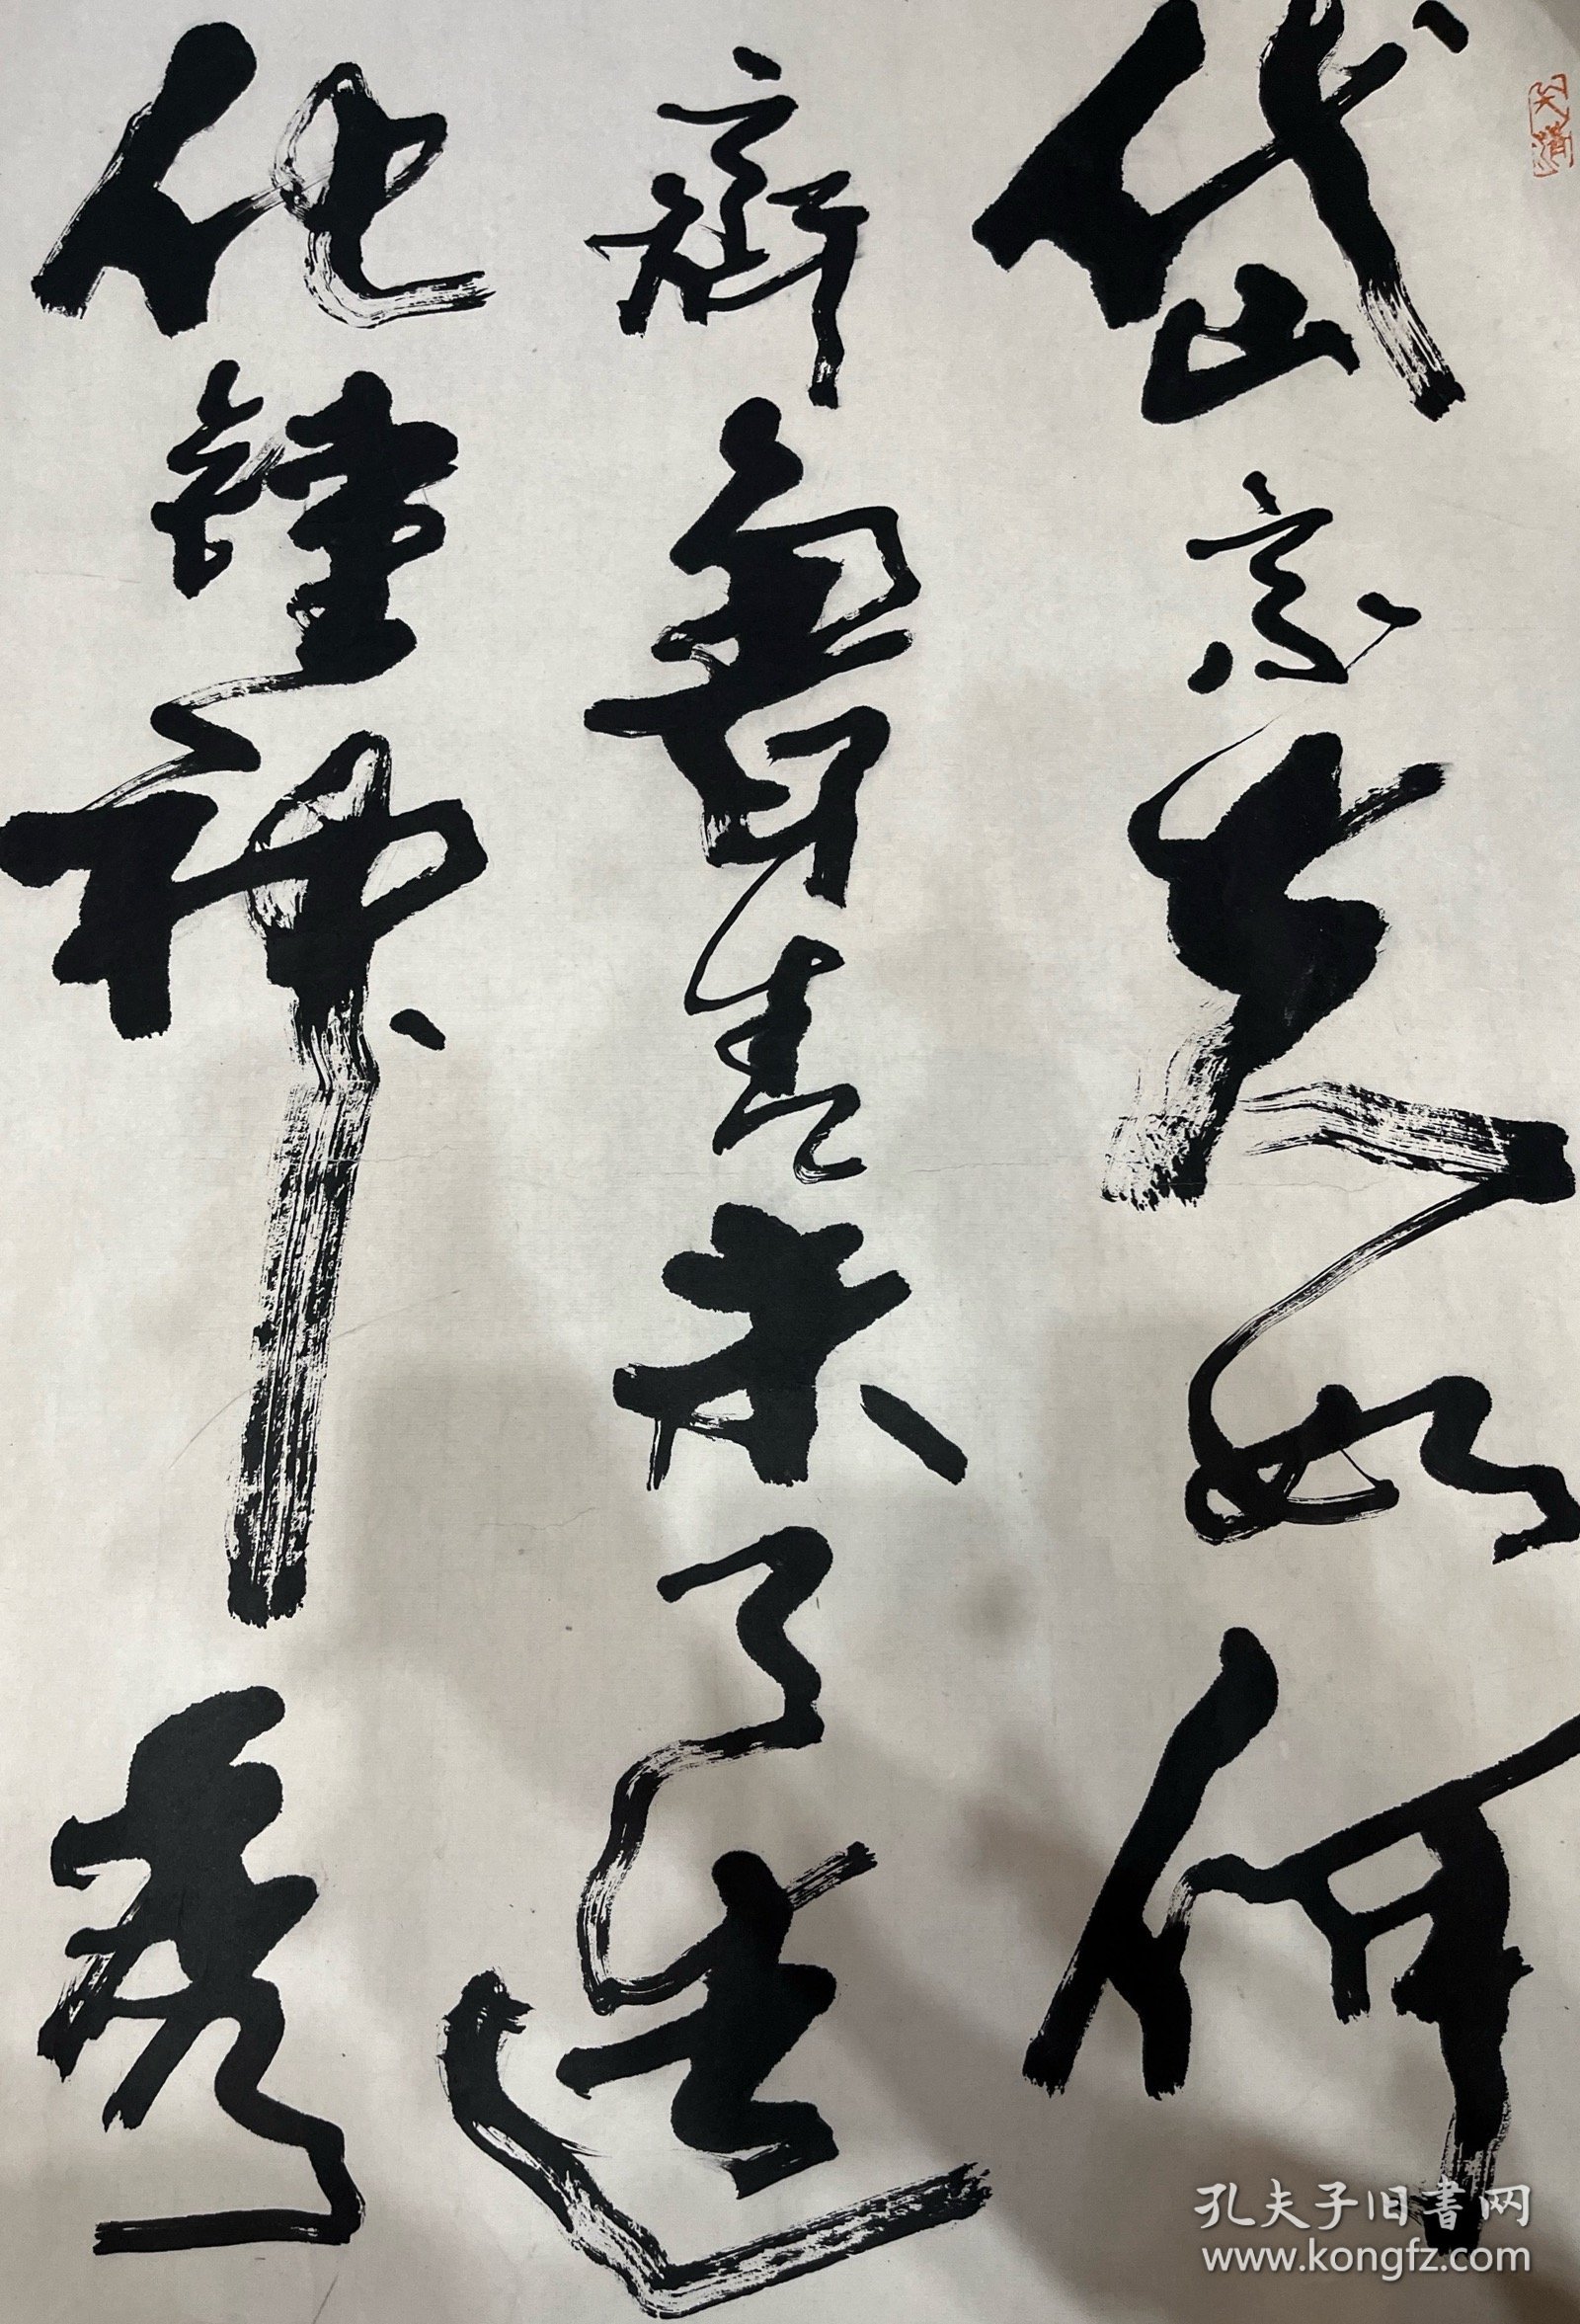 岱宗夫如何
齊魯青未了造
化鍾神秀
孔夫子旧书网
www.kongfz.com